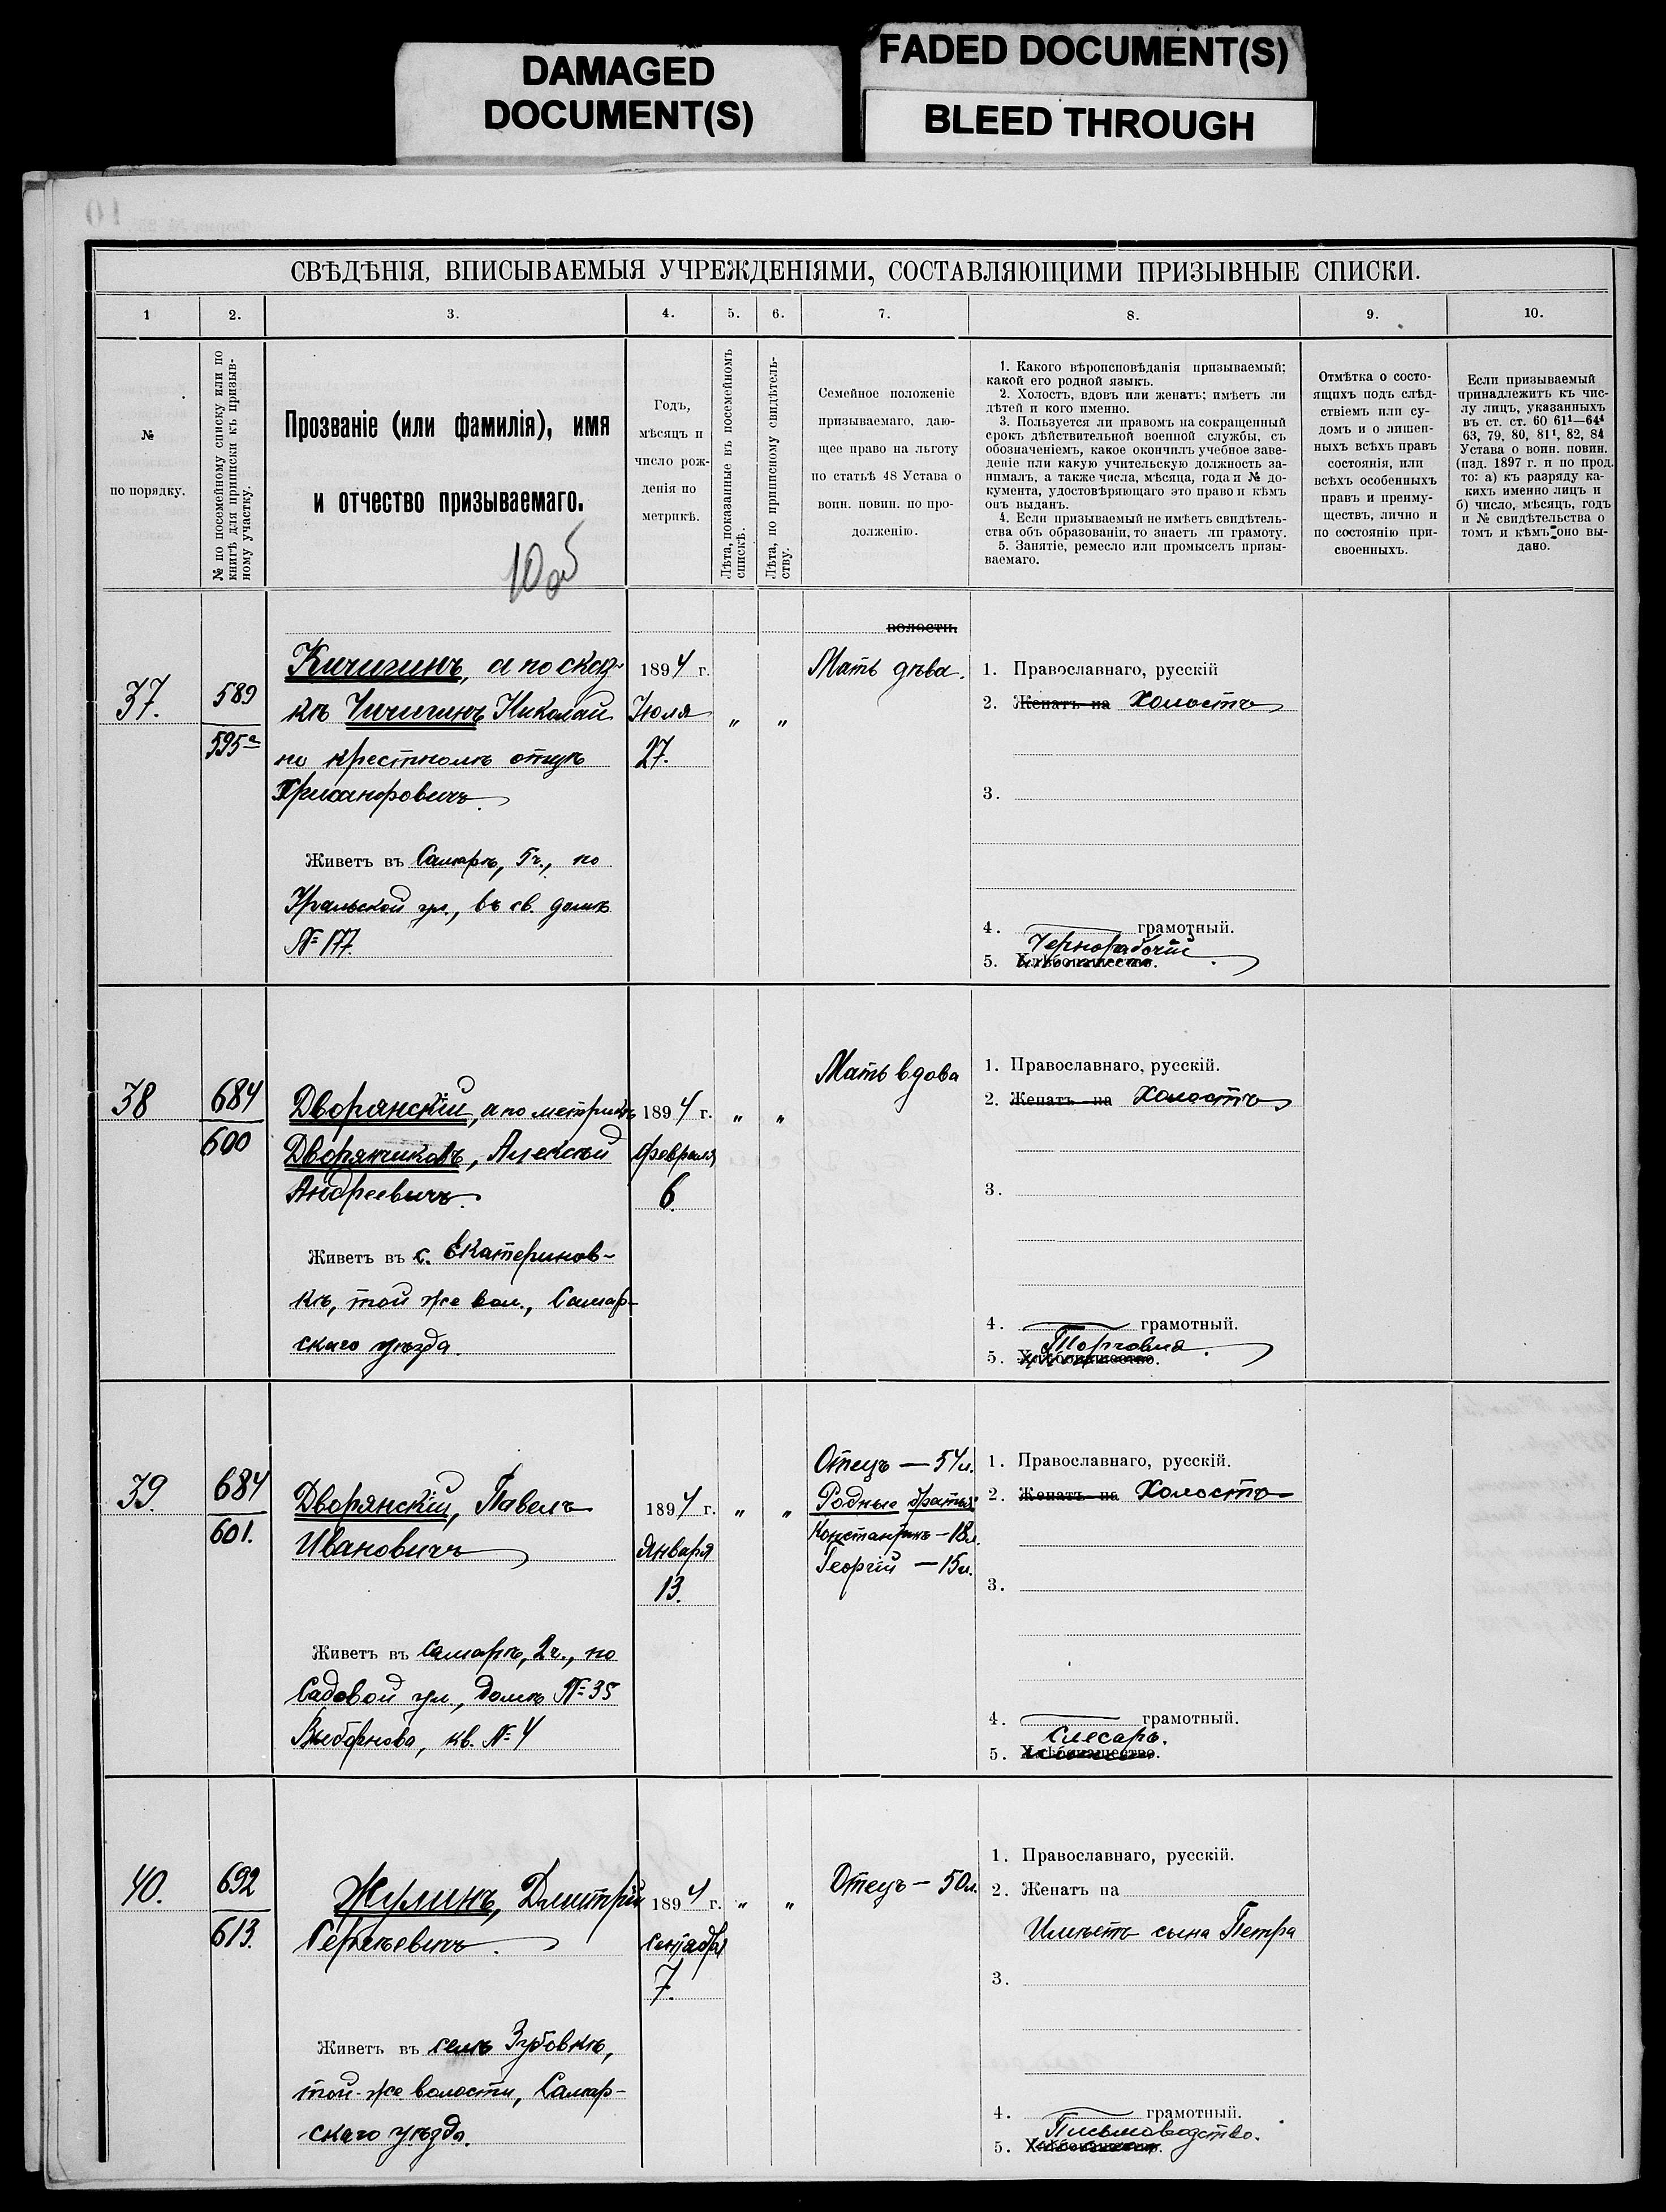 DAMAGED
DOCUMENT(S)
FADED DOCUMENT(S)
BLEED THROUGH
СВѢДѢНІЯ, ВПИСЫВАЕМЫЯ УЧРЕЖДЕНІЯМИ, СОСТАВЛЯЮЩИМИ ПРИЗЫВНЫЕ СПИСКИ.
1 2. 3. 4. 5. 6. 7. 8. 9. 10.
№
по порядку.
№ по посемейному списку или по
книгѣ для приписки къ призыв-
ному участку.
Прозваніе (или фамилія), имя
и отчество призываемаго.
10 об
Годъ,
мѣсяцъ и
число рож-
денія по
метрикѣ.
Лѣта, показанные въ посемейномъ
спискѣ.
Лѣта, по приписному свидѣтель-
ству.
Семейное положеніе
призываемаго, даю-
щее право на льготу
по статьѣ 48 Устава о
воин. повин. по про-
долженію.
1. Какого вѣроисповѣданія призываемый;
какой его родной языкъ.
2. Холостъ, вдовъ или женатъ; имѣетъ ли
дѣтей и кого именно.
3. Пользуется ли правомъ на сокращенный
срокъ дѣйствительной военной службы, съ
обозначеніемъ, какое окончилъ учебное заве-
деніе или какую учительскую должность за-
нималъ, а также числа, мѣсяца, года и № до-
кумента, удостовѣряющаго это право и кѣмъ
онъ выданъ.
4. Если призываемый не имѣетъ свидѣтель-
ства объ образованіи, то знаетъ ли грамоту.
5. Занятіе, ремесло или промыселъ призы-
ваемаго.
Отмѣтка о состо-
ящихъ подъ слѣд-
ствіемъ или су-
домъ и о лишен-
ныхъ всѣхъ правъ
состоянія, или
всѣхъ особенныхъ
правъ и преиму-
ществъ, лично и
по состоянію при-
своенныхъ.
Если призываемый
принадлежитъ къ чис-
лу лицъ, указанныхъ
въ ст. ст. 60 61¹—64⁴
63, 79, 80, 81¹, 82, 84
Устава о воин. повин.
(изд. 1897 г. и по прод.
то: а) къ разряду ка-
кихъ именно лицъ и
б) число, мѣсяцъ, годъ
и № свидѣтельства о
томъ и кѣмъ оно вы-
дано.
волости.
37.
589
595ª
Кичигинъ, а по сказ-
кѣ Чичигинъ Николай
по крестномъ отцѣ
Хрисанфовичъ.
Живетъ въ Самарѣ, 5ч., по
Уральской ул., въ св. домѣ
№ 177.
1894 г.
Іюля
27.
" "
Мать дѣва.
1. Православнаго, русскій
2. Женатъ на Холостъ
3.
4. грамотный.
Чернорабочій.
5. Хлѣбопашество.
38
684
600
Дворянскій, а по метрикѣ
Дворянчиковъ, Алексѣй
Андреевичъ.
Живетъ въ с. Екатеринов-
кѣ, той же вол., Самар-
скаго уѣзда.
1894 г.
Февраля
6.
" "
Мать вдова
1. Православнаго, русскій.
2. Женатъ на Холостъ
3.
4. грамотный.
Торговля.
5. Хлѣбопашество.
39.
684
601.
Дворянскій, Павелъ
Ивановичъ
Живетъ въ Самарѣ, 2ч., по
Садовой ул., домъ № 35
Выборнова, кв. № 4
1894 г.
Января
13.
" "
Отецъ — 54 л.
Родные братья:
Константинъ — 18 л.
Георгій — 15 л.
1. Православнаго, русскій.
2. Женатъ на Холостъ
3.
4. грамотный.
Слесарь.
5. Хлѣбопашество.
40.
692
613.
Жулинъ, Дмитрій
Сергѣевичъ.
Живетъ въ селѣ Зубовкѣ,
той-же волости, Самар-
скаго уѣзда.
1894 г.
Сентября
7.
" "
Отецъ — 50 л.
1. Православнаго, русскій.
2. Женатъ на
Имѣетъ сына Петра
3.
4. грамотный.
Письмоводство.
5. Хлѣбопашество.